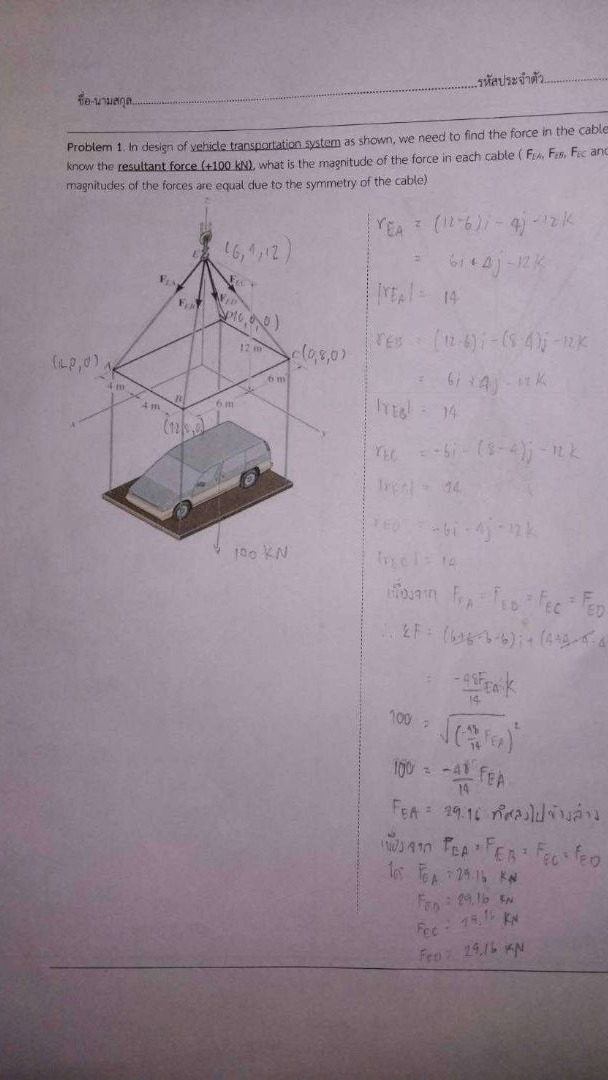 ชื่อ-นามสกุล............................รหัสประจำตัว............
Problem 1. In design of vehicle transportation system as shown, we need to find the force in the cable
know the resultant force (+100 kN), what is the magnitude of the force in each cable ( FEA, FEB, FEC and
magnitudes of the forces are equal due to the symmetry of the cable)
z
E (6,4,12)
FEA
FEC
FEB
FED
D(0,0,0)
12 m
(12,0,0) A
C(0,8,0)
4 m
6 m
4 m
B
6 m
(12,8,0)
x
y
100 KN
rEA = (12-6)i - 4j - 12k
= 6i + 4j - 12k
|rEA| = 14
rEB = (12-6)i - (8-4)j - 12k
= 6i + 4j - 12k
|rEB| = 14
rEC = -6i - (8-4)j - 12k
|rEC| = 14
rED = -6i - 4j - 12k
|rEC| = 14
เนื่องจาก FEA = FED = FEC = FED
∴ ΣF = (6+6-6-6)i + (4+4-4-4
= -48FEA/14 k
100 = √(-48/14 FEA)²
100 = -48/14 FEA
FEA = 29.16 ทิศลงไปข้างล่าง
เนื่องจาก FEA = FEB = FEC = FED
ได้ FEA = 29.16 KN
FED = 29.16 KN
FEC = 29.16 KN
FED = 29.16 KN